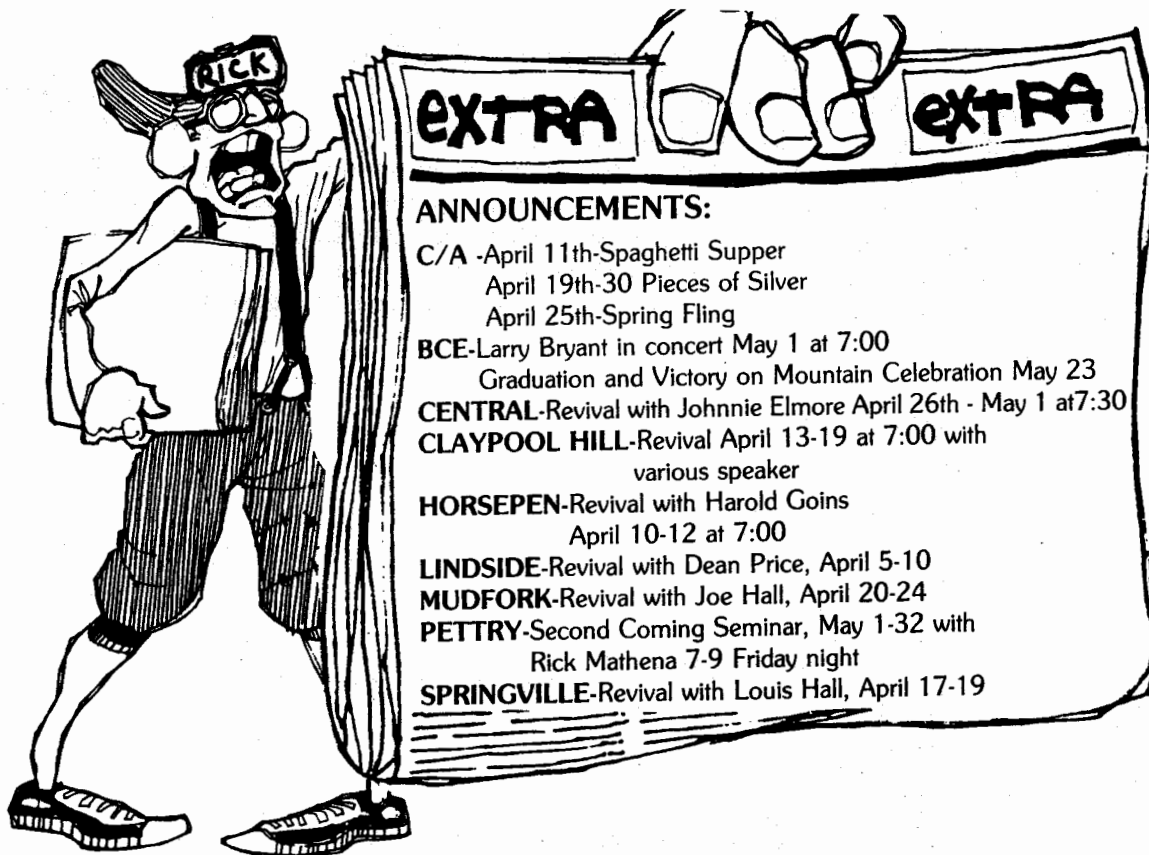 RICK
eXTRA eXTRA
ANNOUNCEMENTS:
C/A -April 11th-Spaghetti Supper
April 19th-30 Pieces of Silver
April 25th-Spring Fling
BCE-Larry Bryant in concert May 1 at 7:00
Graduation and Victory on Mountain Celebration May 23
CENTRAL-Revival with Johnnie Elmore April 26th - May 1 at7:30
CLAYPOOL HILL-Revival April 13-19 at 7:00 with
various speaker
HORSEPEN-Revival with Harold Goins
April 10-12 at 7:00
LINDSIDE-Revival with Dean Price, April 5-10
MUDFORK-Revival with Joe Hall, April 20-24
PETTRY-Second Coming Seminar, May 1-32 with
Rick Mathena 7-9 Friday night
SPRINGVILLE-Revival with Louis Hall, April 17-19